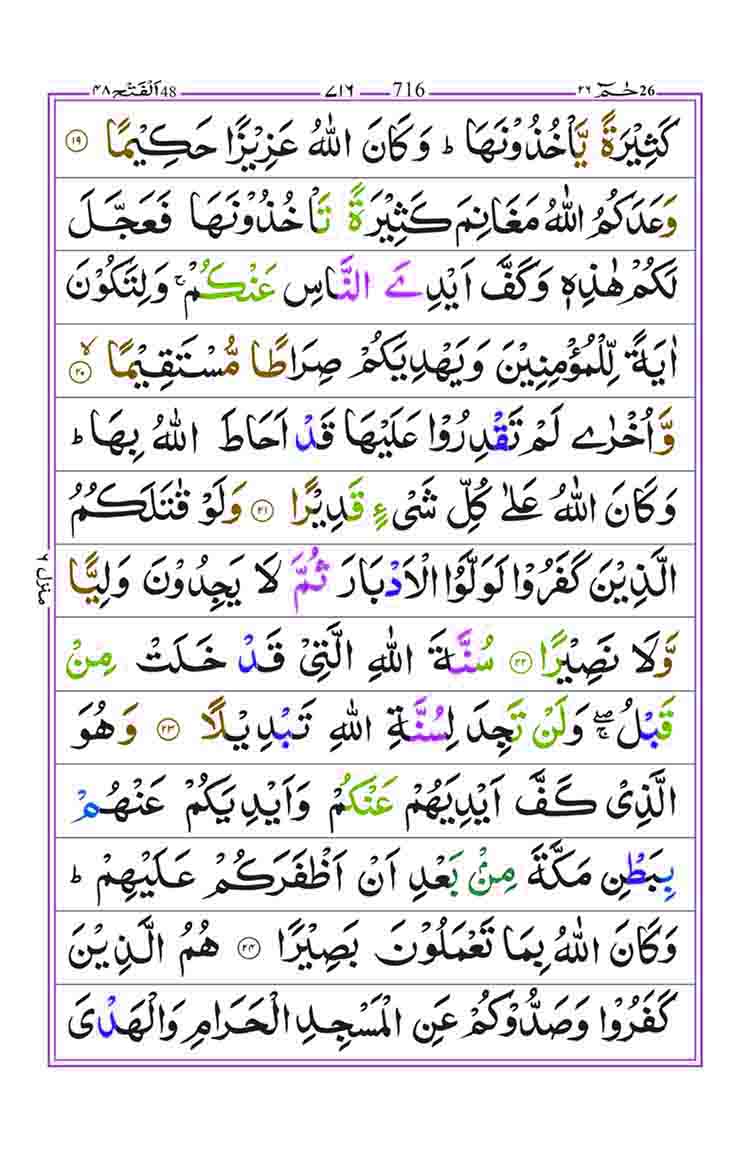 حٰمٓ 26 ٢٦ — 716 — ٧١٦ — 48 اَلْفَتْح ٤٨
كَثِیْرَةً یَّاْخُذُوْنَهَا ؕ وَ كَانَ اللّٰهُ عَزِیْزًا حَكِیْمًا ۝۱۹
وَعَدَكُمُ اللّٰهُ مَغَانِمَ كَثِیْرَةً تَاْخُذُوْنَهَا فَعَجَّلَ
لَكُمْ هٰذِهٖ وَ كَفَّ اَیْدِیَ النَّاسِ عَنْكُمْ ۚ وَ لِتَكُوْنَ
اٰیَةً لِّلْمُؤْمِنِیْنَ وَ یَهْدِیَكُمْ صِرَاطًا مُّسْتَقِیْمًا ۙ۝۲۰
وَّ اُخْرٰی لَمْ تَقْدِرُوْا عَلَیْهَا قَدْ اَحَاطَ اللّٰهُ بِهَا ؕ
وَ كَانَ اللّٰهُ عَلٰی كُلِّ شَیْءٍ قَدِیْرًا ۝۲۱ وَ لَوْ قٰتَلَكُمُ
الَّذِیْنَ كَفَرُوْا لَوَلَّوُا الْاَدْبَارَ ثُمَّ لَا یَجِدُوْنَ وَلِیًّا
وَّ لَا نَصِیْرًا ۝۲۲ سُنَّةَ اللّٰهِ الَّتِیْ قَدْ خَلَتْ مِنْ
قَبْلُ ۖۚ وَ لَنْ تَجِدَ لِسُنَّةِ اللّٰهِ تَبْدِیْلًا ۝۲۳ وَ هُوَ
الَّذِیْ كَفَّ اَیْدِیَهُمْ عَنْكُمْ وَ اَیْدِیَكُمْ عَنْهُمْ
بِبَطْنِ مَكَّةَ مِنْۢ بَعْدِ اَنْ اَظْفَرَكُمْ عَلَیْهِمْ ؕ
وَ كَانَ اللّٰهُ بِمَا تَعْمَلُوْنَ بَصِیْرًا ۝۲۴ هُمُ الَّذِیْنَ
كَفَرُوْا وَ صَدُّوْكُمْ عَنِ الْمَسْجِدِ الْحَرَامِ وَ الْهَدْیَ
منزل ٦